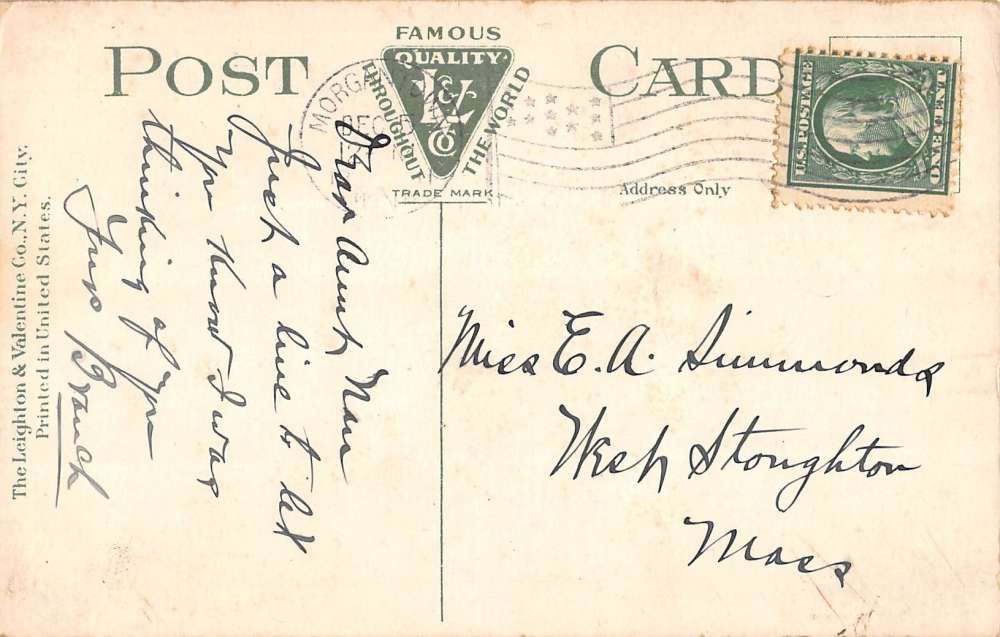 POST CARD
FAMOUS
QUALITY
THROUGHOUT
THE WORLD
L & V Co
TRADE MARK
MORGA
DEC
U.S. POSTAGE
ONE CENT
Address Only
Dear Aunt Nan
Just a line to let
you know I was
thinking of you
Branch
Miss E. A. Simmonds
West Stoughton
Mass
The Leighton & Valentine Co., N.Y. City.
Printed in United States.